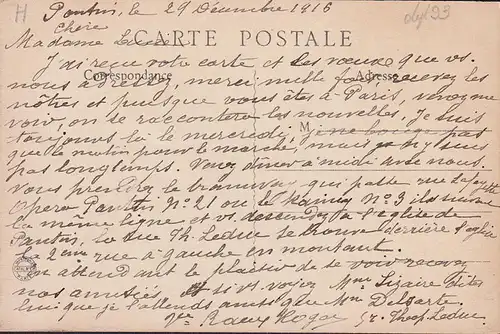 H
Pantin, le 29 Décembre 1916
Chère
Madame
CARTE POSTALE
J'ai reçu votre carte et les vœux que vs.
Correspondance
Adresse
nous adressez, merci mille fois, recevez les
nôtres et puisque vous êtes à Paris, venez me
voir, on se racontera les nouvelles, je suis
toujours là le mercredi, je ne bouge pas
M
que le matin pour le marché, mais je n'y suis
pas longtemps. Venez dîner à midi avec nous.
Vous prendrez le tramway qui passe rue Lafayette
Opéra Pantin N° 21 ou le N° 3 ils suivent
la même ligne et vs. descendez à l'église de
Pantin, la rue Th. Leduc se trouve derrière l'église
la 2ème rue à gauche en montant.
En attendant le plaisir de te voir recevez
nos amitiés et si vs. voyez Mme Lizaire dites
lui que je l'attends ainsi que Mme Delsarte.
Roger